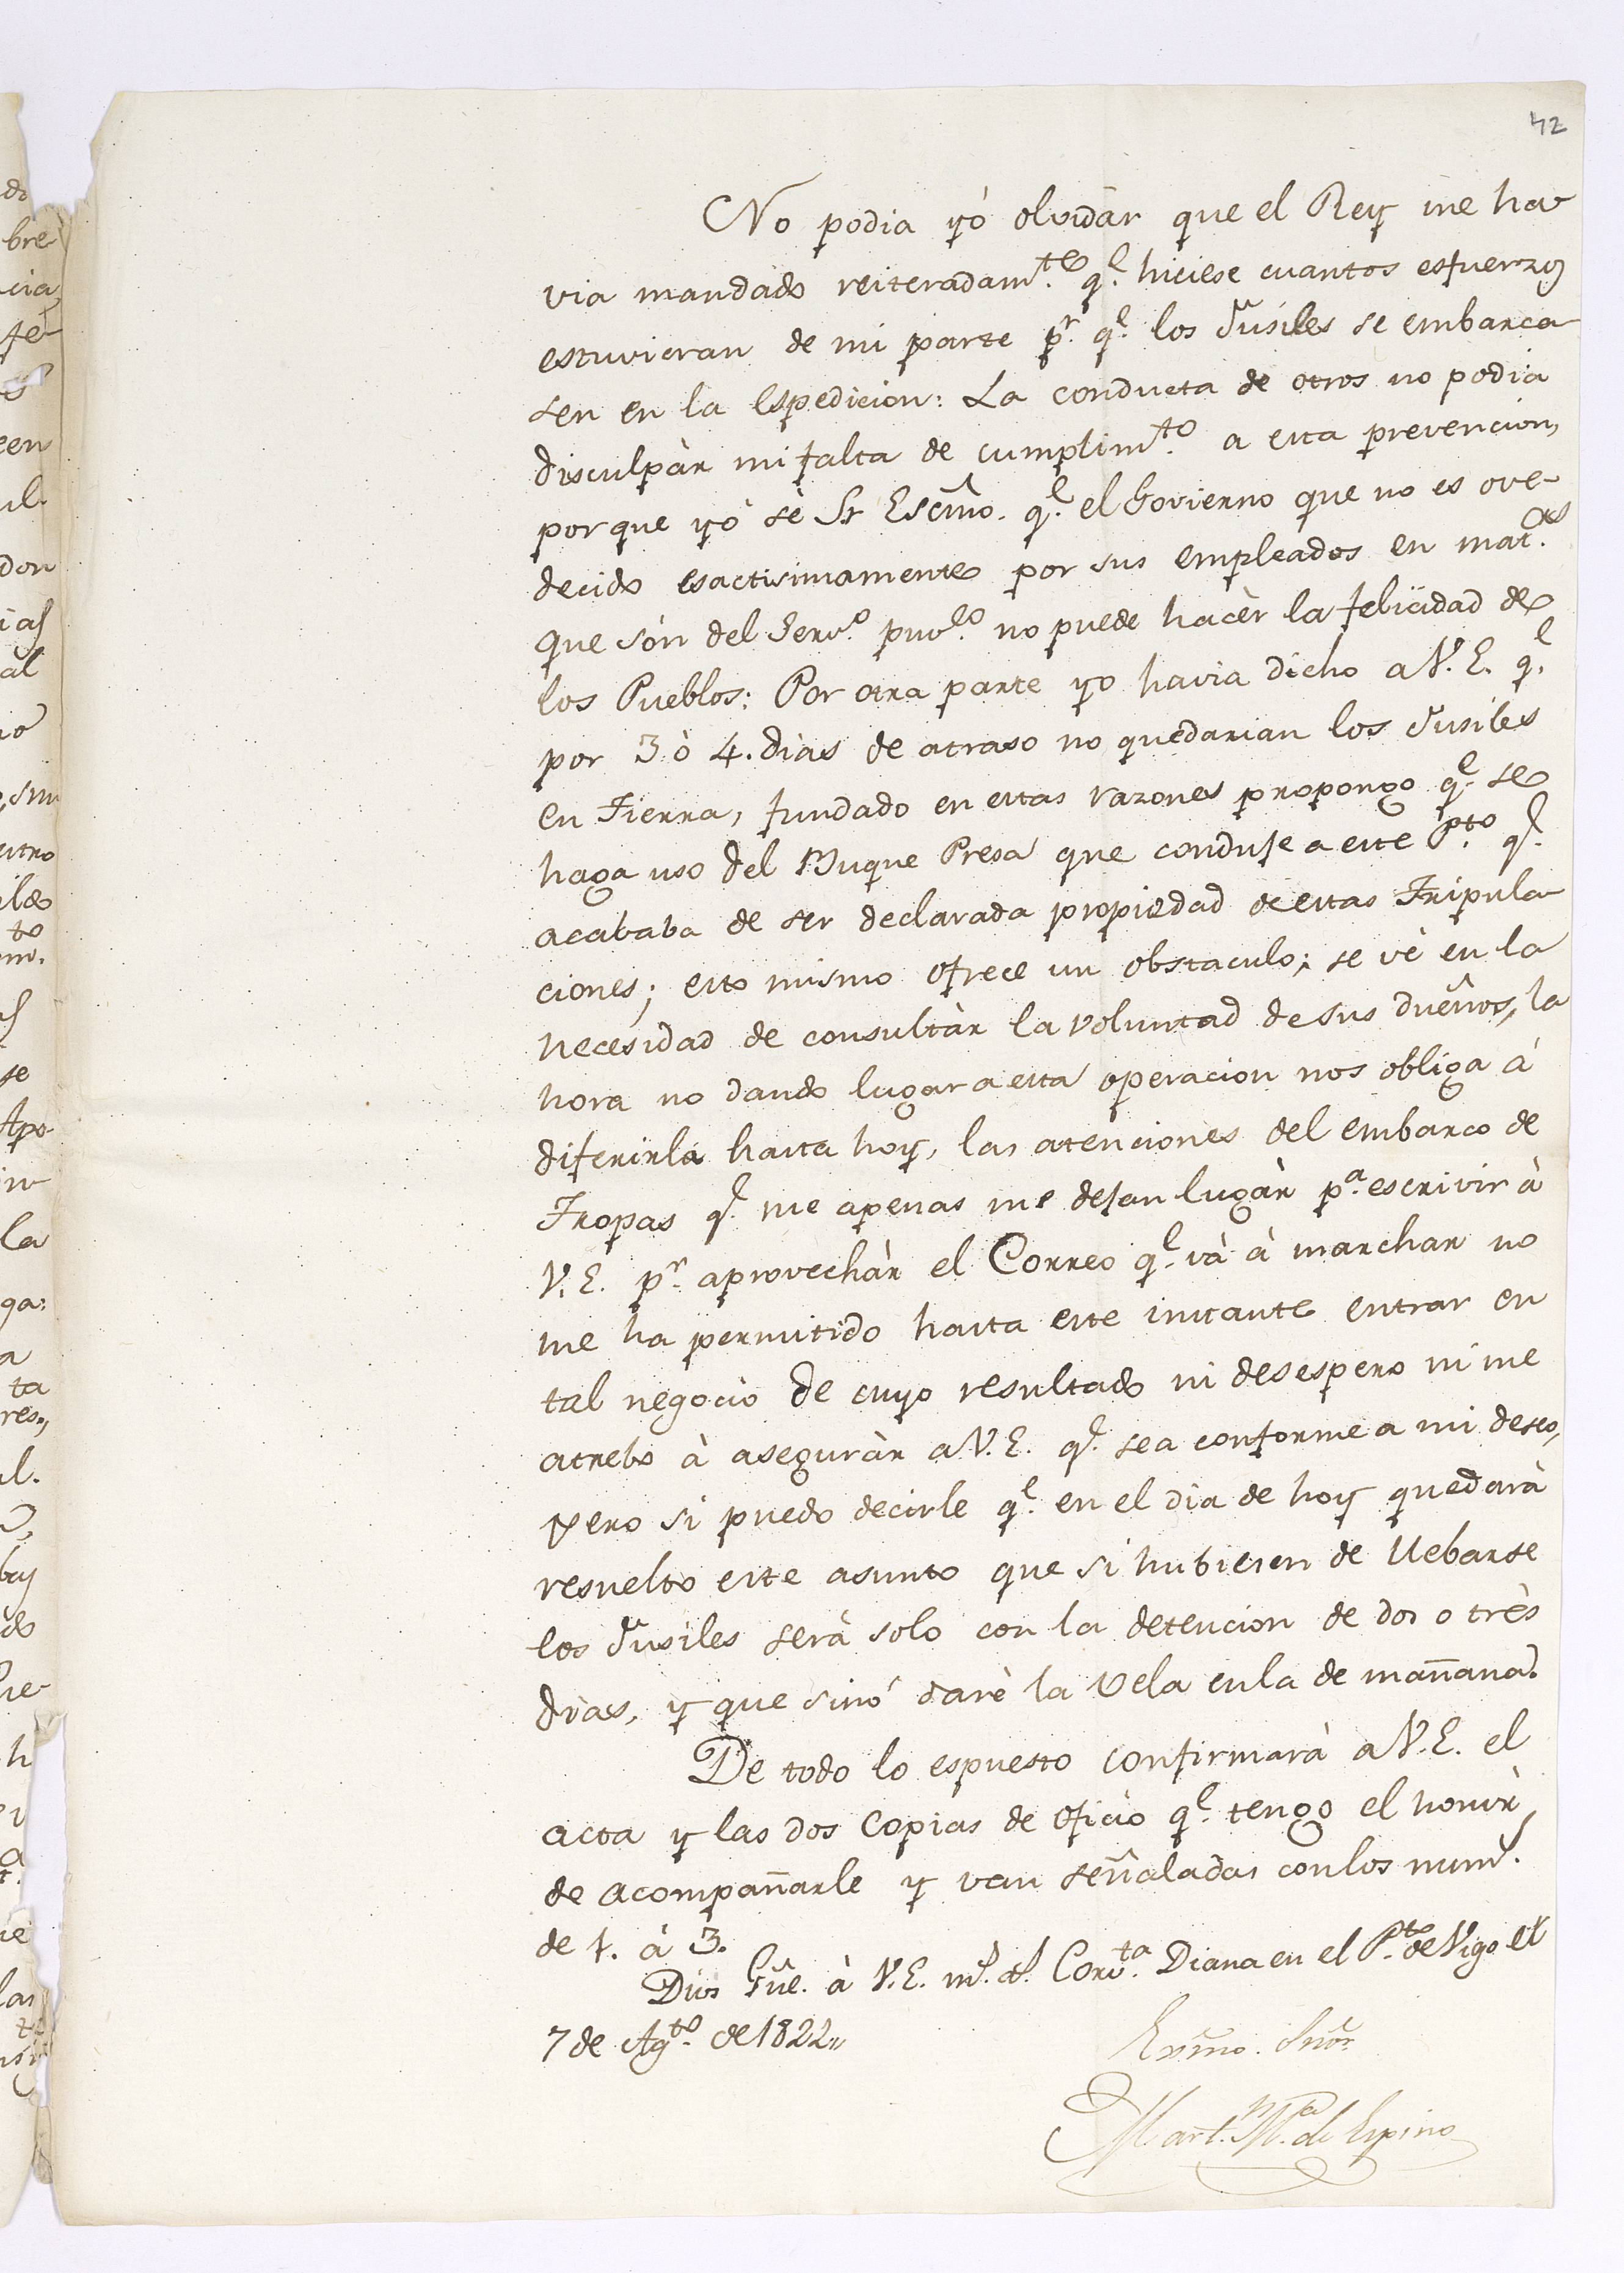 42
No podia yó olvidar que el Rey me ha-
via mandado reiteradam.te q.e hiciese cuantos esfuerzos
estuvieran de mi parte p.r q.e los Fusiles se embarca-
sen en la Espedicion: La conducta de otros no podia
disculpàr mi falta de cumplim.to a esta prevencion,
porque yó sè Sr Escmo. q.e el Govierno que no es ove-
decido esactisimamente por sus empleados en mat.as
que són del Serv.o puv.co no puede hacèr la felicidad de
los Pueblos: Por otra parte yo havia dicho a V. E. q.e
por 3 ò 4. dias de atraso no quedarian los Fusiles
en Tierra, fundado en estas razones propongo q.e se
haga uso del Buque Presa que conduje a este P.to q.e
acababa de ser declarada propiedad de estas Tripula-
ciones; esto mismo ofrece un obstaculo; se vè en la
necesidad de consultàr la voluntad de sus dueños, la
hora no dando lugar a esta operacion nos obliga á
diferirla hasta hoy, las atenciones del embarco de
Tropas q.e me apenas me dejan lugàr p.a escrivir à
V. E. p.r aprovechàr el Correo q.e và à marchar no
me ha permitido hasta este instante entrar en
tal negocio de cuyo resultado ni desespero ni me
atrebo à aseguràr a V. E. q.e sea conforme a mi deseo,
pero si puedo decirle q.e en el dia de hoy quedarà
resuelto este asunto que si hubiesen de llebarse
los Fusiles serà solo con la detencion de dos o très
dias, y que sinó darè la Vela en la de mañana.
De todo lo espuesto confirmarà a V. E. el
acta y las dos Copias de oficio q.e tengo el honòr
de acompañarle y van señaladas con los num.s
de 1. à 3.
Dios Gûe. à V. E. m.s a.s Corv.ta Diana en el P.to de Vigo el
7 de Ag.to de 1822,,
Exsmo. Snôr
Mart.n M.a de Espino